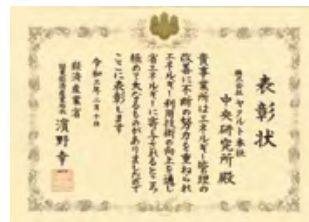 表彰状
株式会社 ヤクルト本社
中央研究所 殿
貴事業所はエネルギー管理の
改善に不断の努力を重ねられ
エネルギー利用技術の向上を通し
省エネルギーに寄与されるところ
極めて大なるものがありましたので
ここに表彰します
令和三年二月十日
経済産業省
関東経済産業局長 濱野幸一